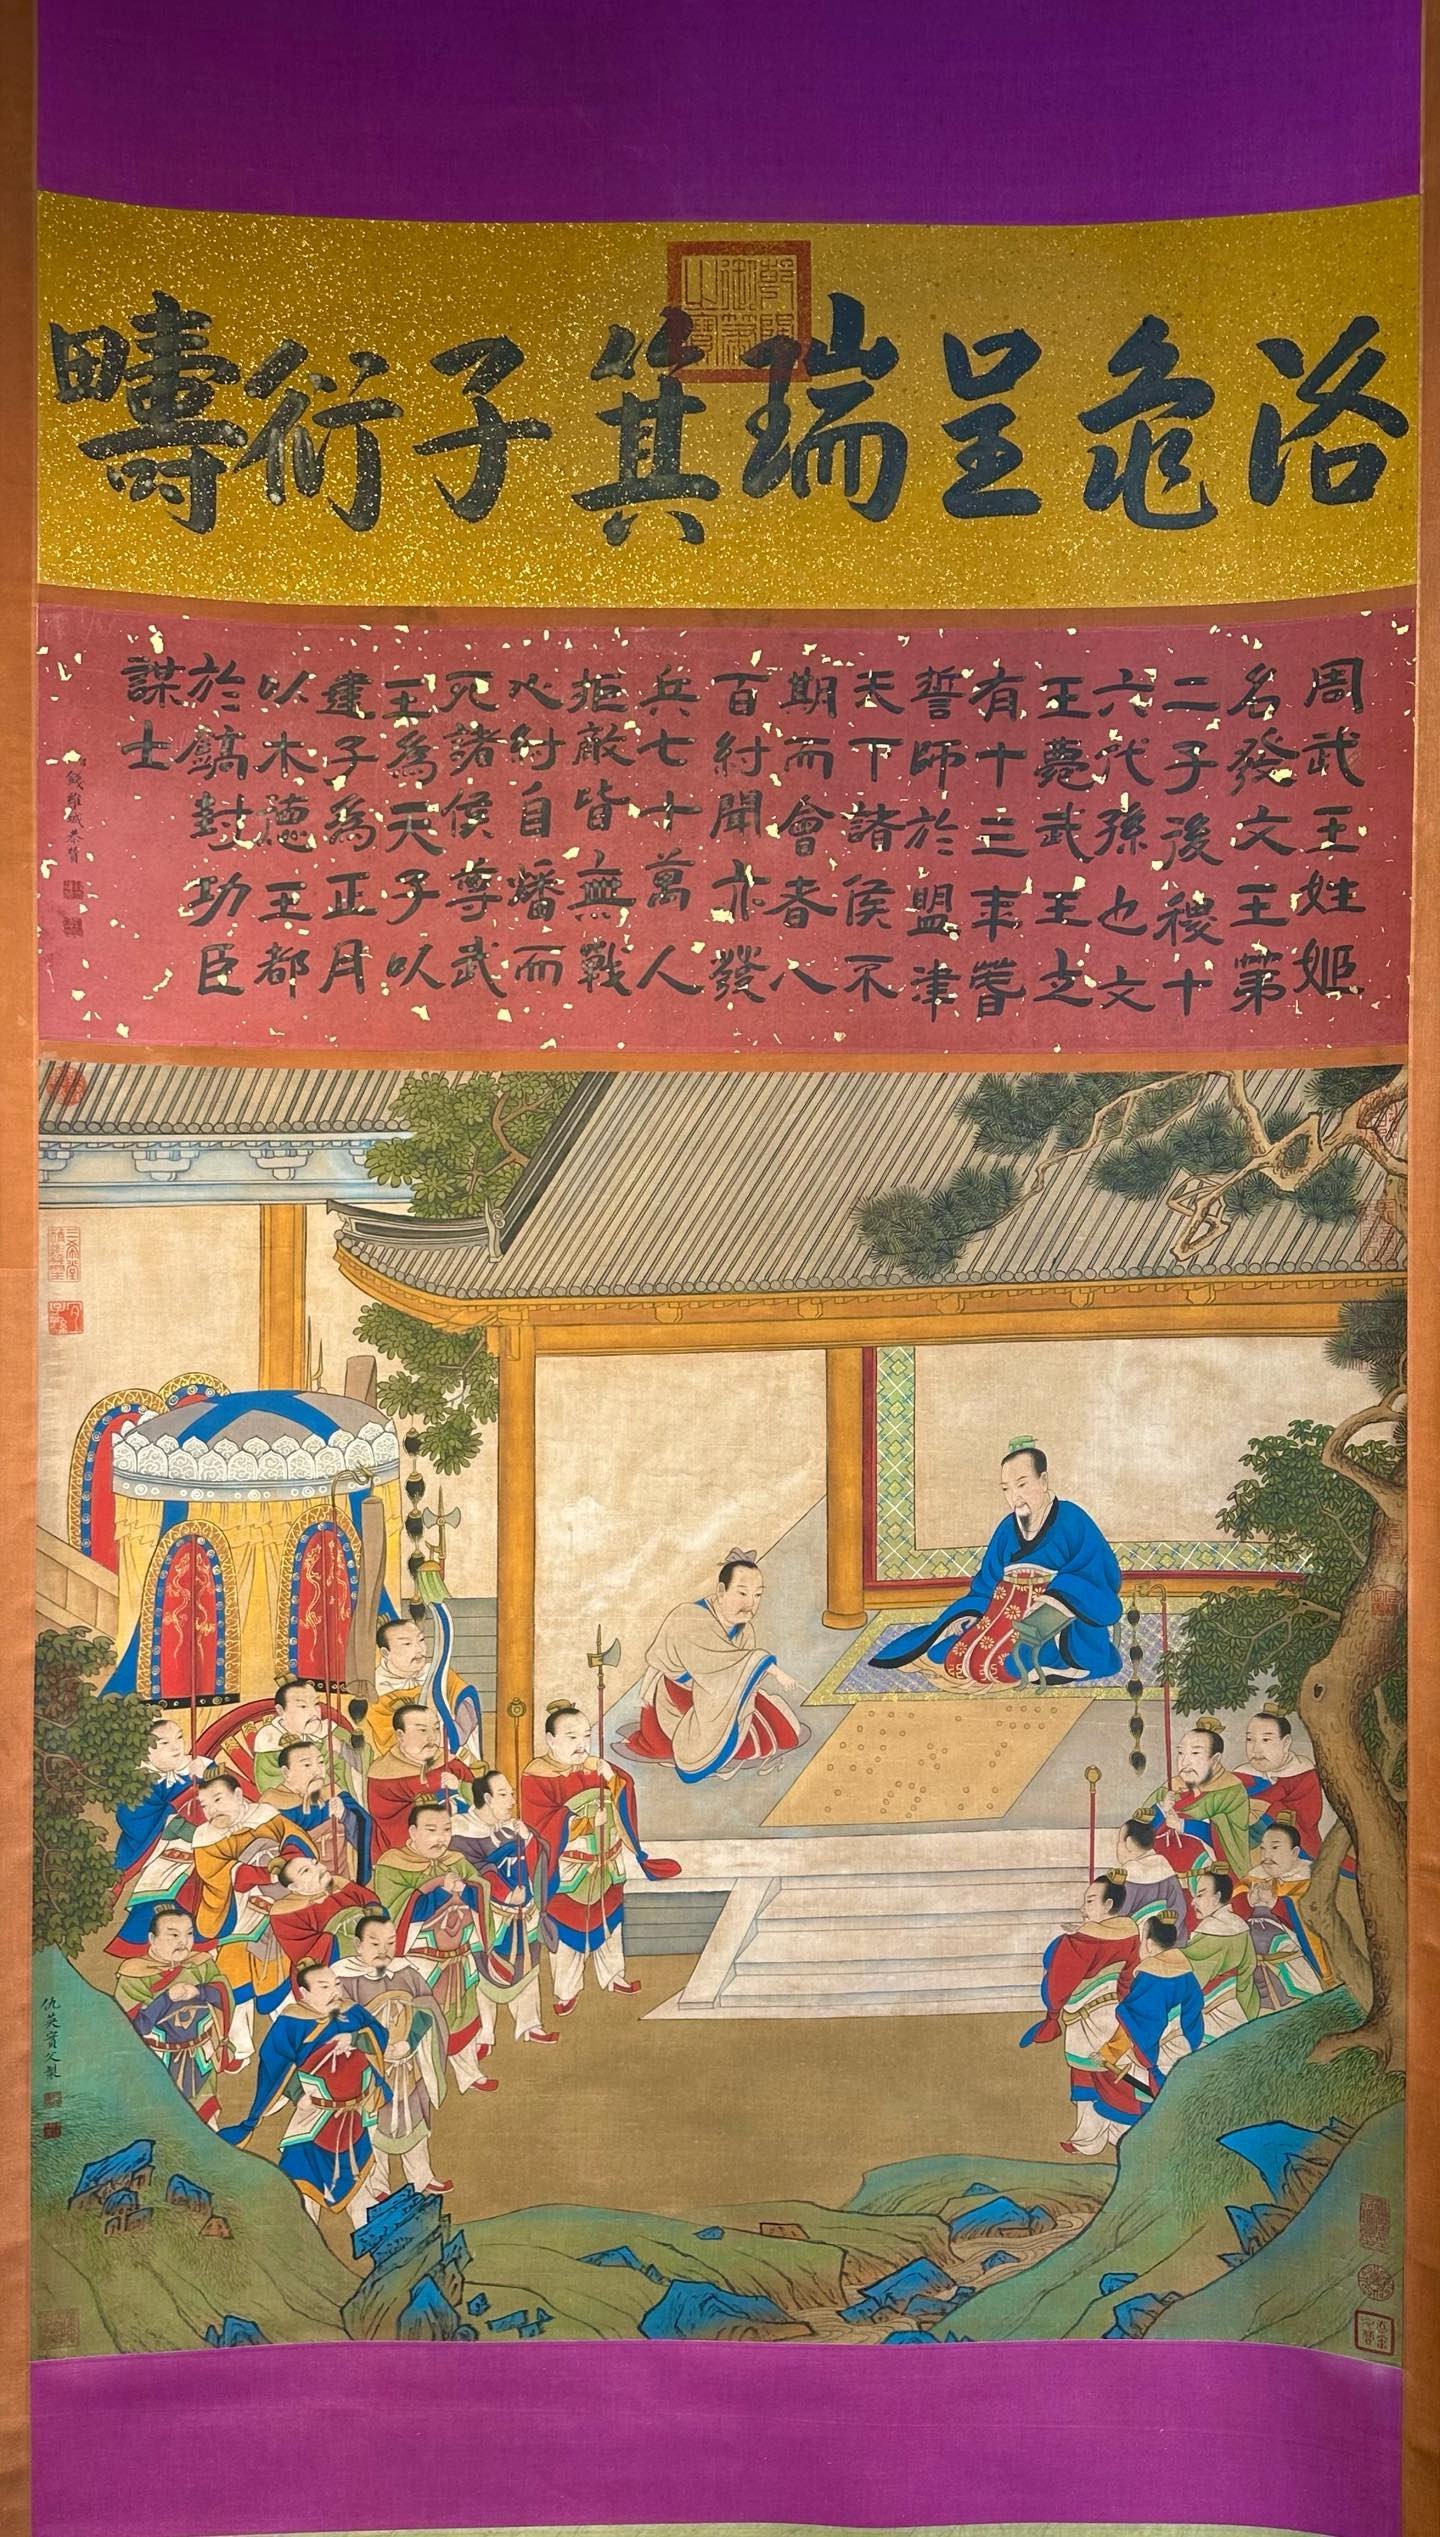 洛龜呈瑞箕子衍疇
乾隆御筆之寶
周武王姓姬
名發文王第
二子後稷十
六代孫也文
王薨武王立
有十三年
誓師於盟津
天下諸侯不
期而會者八
百紂聞亦發
兵七十萬人
拒敵皆無戰
心紂自燔而
死諸侯尊武
王為天子以
建子為正月
以木德王都
於鎬封功臣
謀士
錢維城恭贊
三希堂
仇英實父製